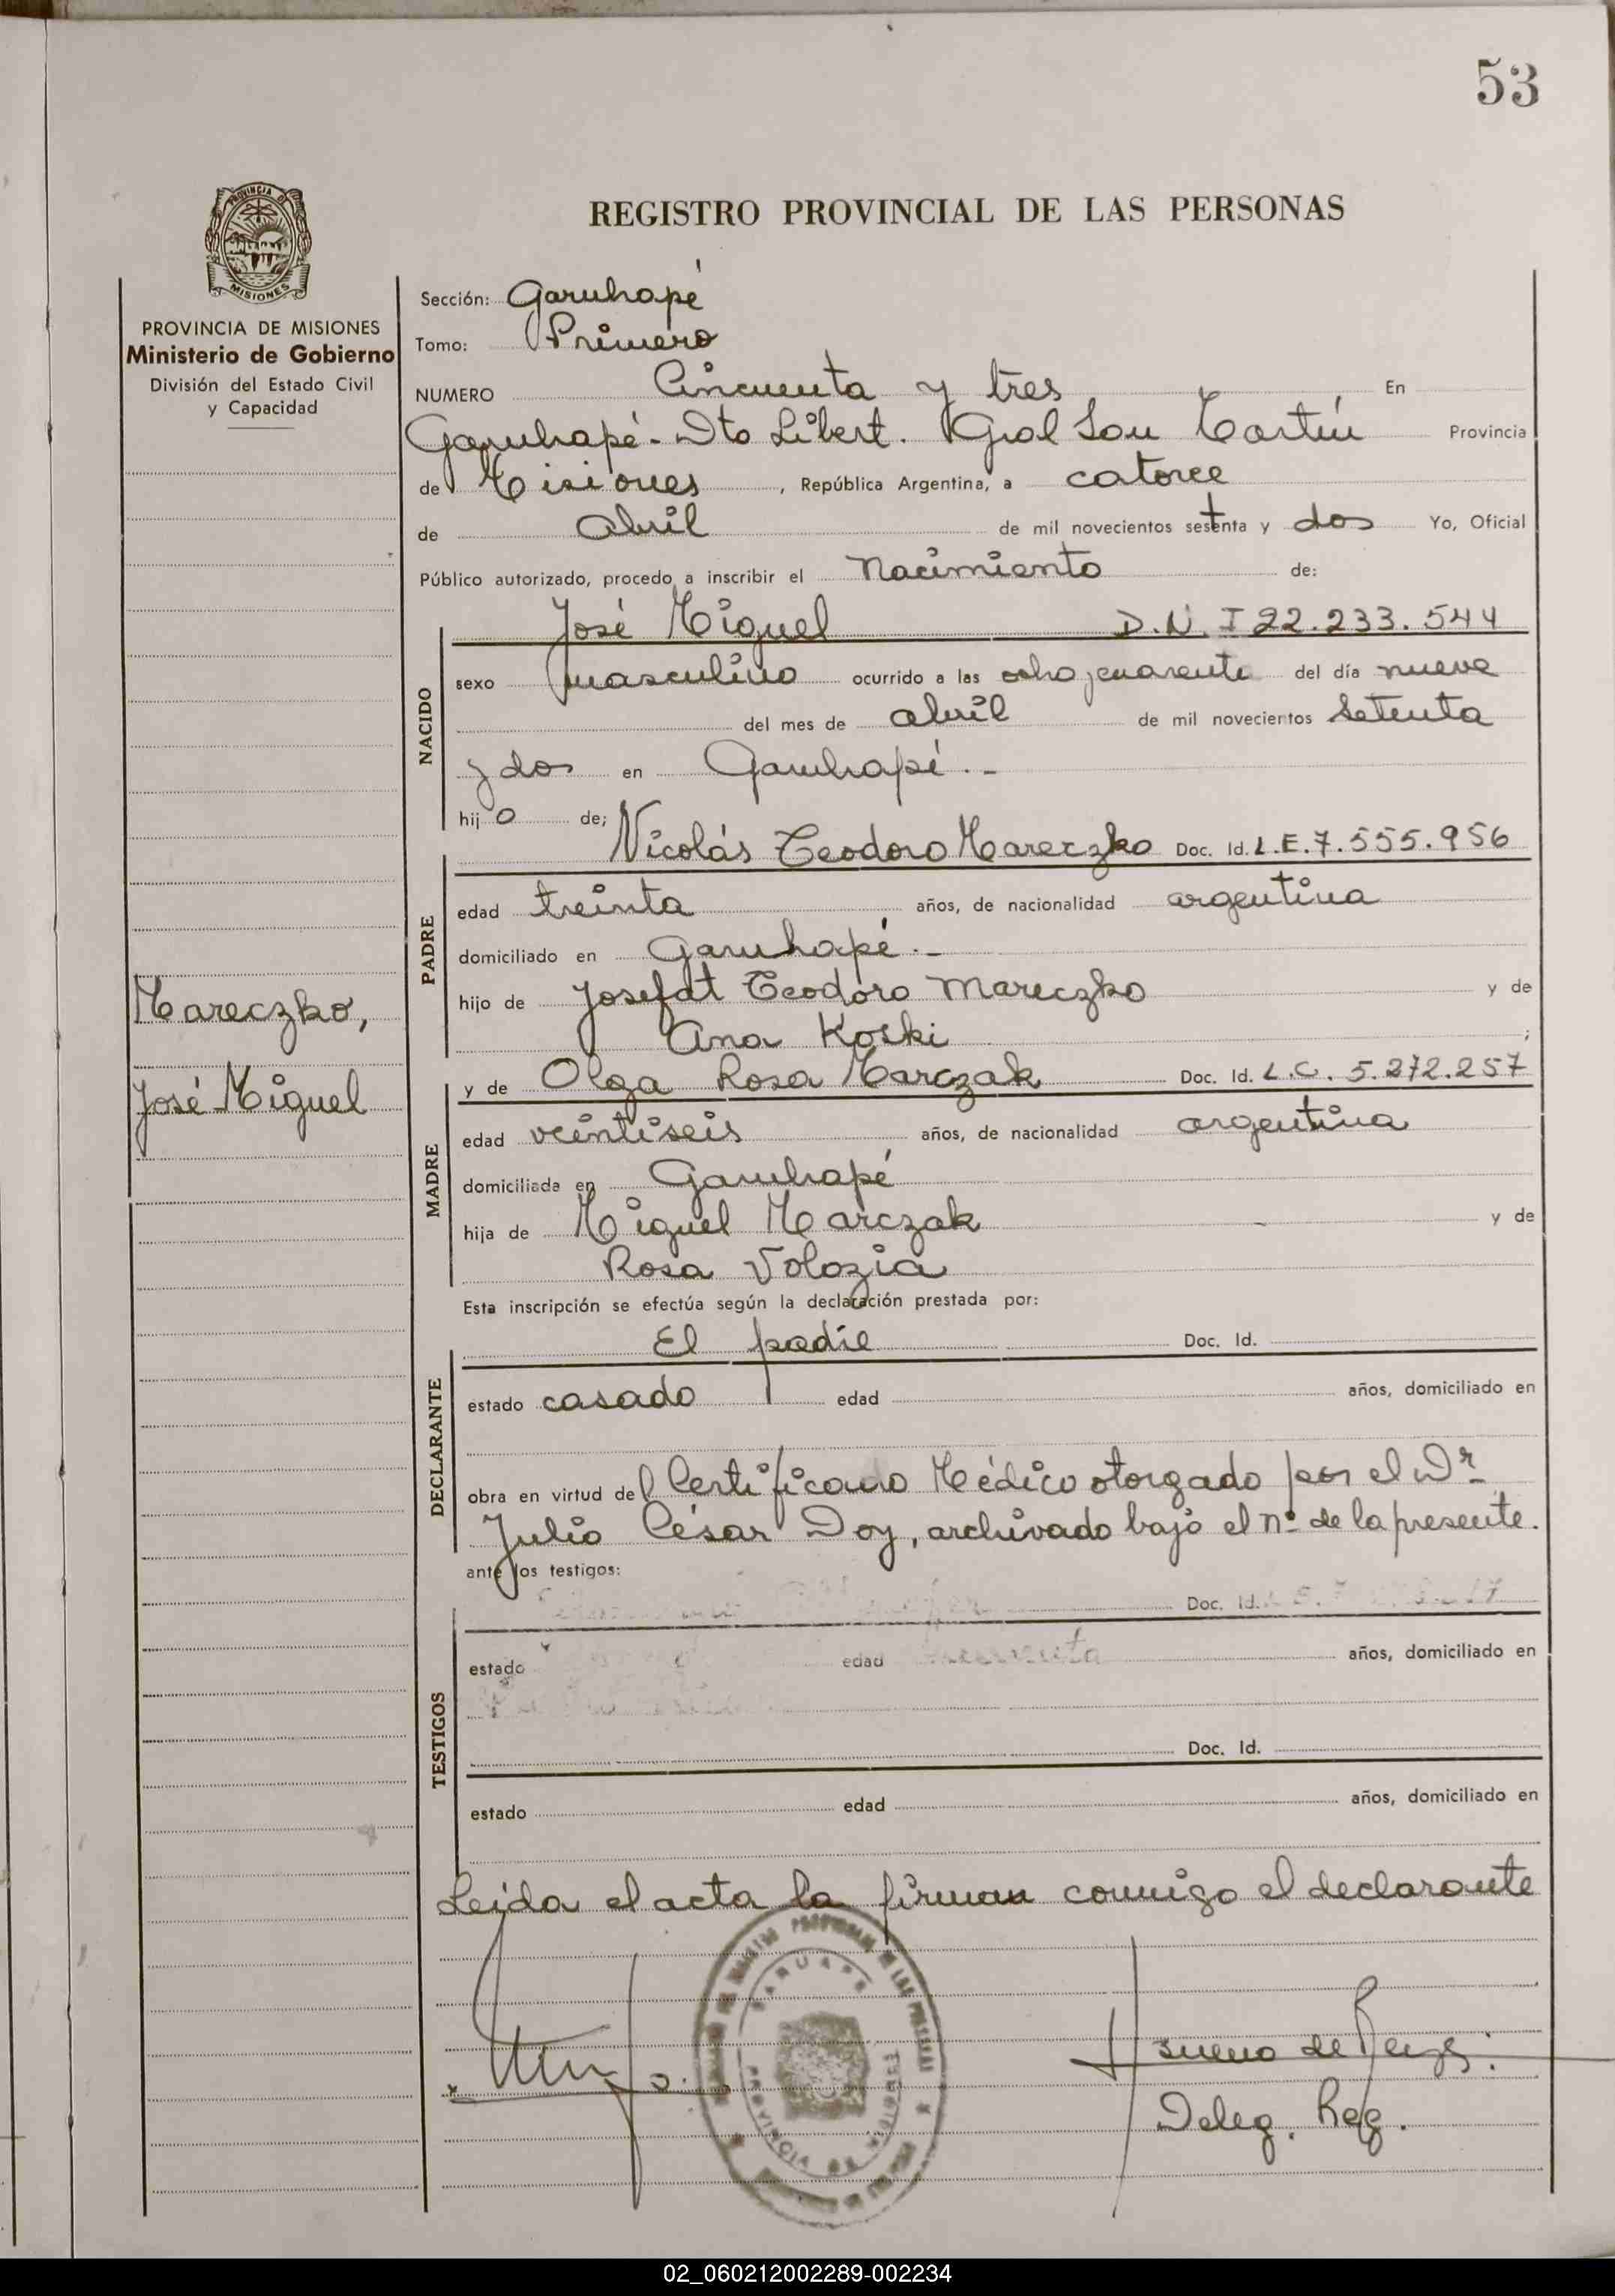 53
PROVINCIA DE
MISIONES
REGISTRO PROVINCIAL DE LAS PERSONAS
PROVINCIA DE MISIONES
Ministerio de Gobierno
División del Estado Civil
y Capacidad
Mareczko,
José Miguel
Sección: Garuhapé
Tomo: Primero
NUMERO Cincuenta y tres En
Garuhapé - Dto Libert. Gral San Martín Provincia
de Misiones, República Argentina, a catorce
de abril de mil novecientos setenta y dos Yo, Oficial
Público autorizado, procedo a inscribir el Nacimiento de:
José Miguel D.N.I 22.233.544
NACIDO
sexo masculino ocurrido a las ocho, cuarenta del día nueve
del mes de abril de mil novecientos setenta
y dos en Garuhapé.-
hijo de;
Nicolás Teodoro Mareczko Doc. Id. L.E. 7.555.956
PADRE
edad treinta años, de nacionalidad argentina
domiciliado en Garuhapé.-
hijo de Josefat Teodoro Mareczko y de
Ana Koski;
y de Olga Rosa Marczak Doc. Id. L.C. 5.272.257
MADRE
edad veintiseis años, de nacionalidad argentina
domiciliada en Garuhapé
hija de Miguel Marczak y de
Rosa Volozia
Esta inscripción se efectúa según la declaración prestada por:
El padre Doc. Id.
DECLARANTE
estado casado edad años, domiciliado en
obra en virtud del Certificado Médico otorgado por el Dr.
Julio César Doy, archivado bajo el nº de la presente.
ante los testigos:
Doc. Id.
TESTIGOS
estado edad años, domiciliado en
Doc. Id.
estado edad años, domiciliado en
Leida el acta la firman conmigo el declarante
PROVINCIA DE
Deleg. Reg.
02_060212002289-002234